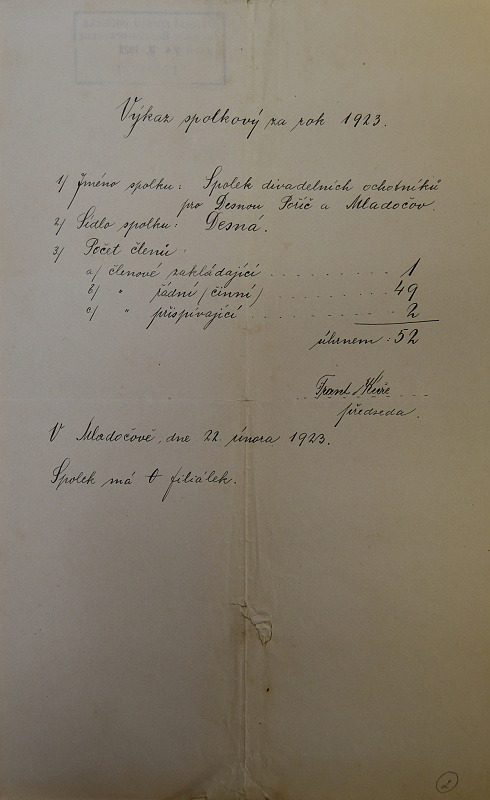 Výkaz spolkový za rok 1923.
1/ Jméno spolku: Spolek divadelních ochotníků
pro Desnou Poříč a Mladočov.
2/ Sídlo spolku: Desná.
3/ Počet členů:
a/ členové zakládající . . . . . . . . . . 1
b/ " řádní (činní) . . . . . . . . . . 49
c/ " přispívající . . . . . . . . . . 2
úhrnem: 52
Frant.
předseda.
V Mladočově, dne 22. února 1923.
Spolek má 0 filiálek.
2